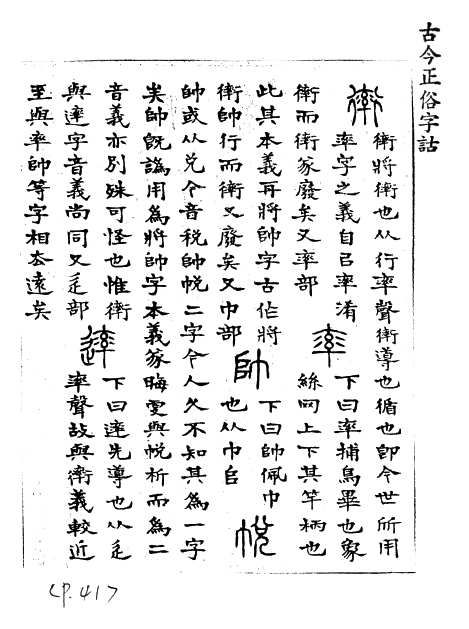 古今正俗字詁
𧗿
𧗿將𧗿也从行率聲𧗿導也循也卽今世所用
率字之義自㠯率淆
𧗿而𧗿篆廢矣又率部
率
下曰率捕鳥畢也象
絲网上下其竿柄也
此其本義再將帥字古作將
𧗿帥行而𧗿又廢矣又巾部
帥
下曰帥佩巾
也从巾𠂤
帨
帥或从兌今音稅帥帨二字今人久不知其為一字
矣帥旣譌用為將帥字本義篆晦與帨析而為二
音義亦別殊可怪也惟𧗿
與䢦字音義尚同又辵部
䢦
下曰䢦先導也从辵
率聲故與𧗿義較近
至與率帥等字相去遠矣
CP.417